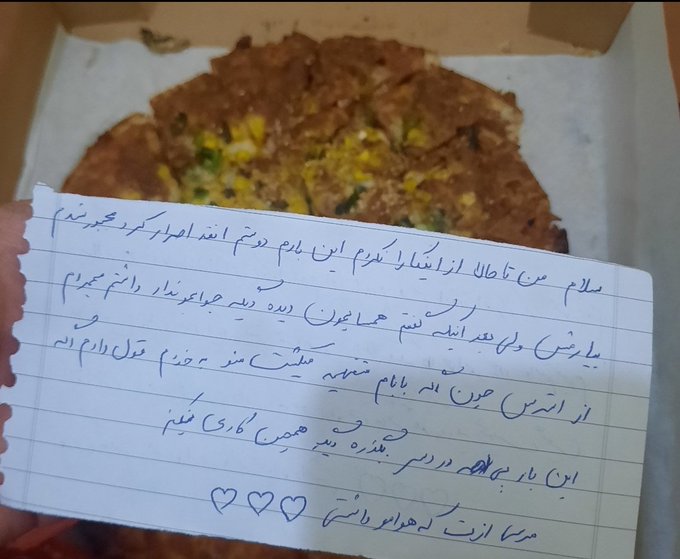 سلام من تا حالا از اینکارا نکردم این بارم دوستم انقد اصرار کرد مجبور شدم
بیارمش ولی بعد اینکه گفتم همسایمون دیده دیگه جوابمو نداد داشتم میمردم
از استرس چون اگه بابام بفهمه میکشت منو به خودم قول دادم اگه
این بار بی دردسر بگذره دیگه همچین کاری نکنم
مرسی ازت که هوامو داشتی ♡♡♡